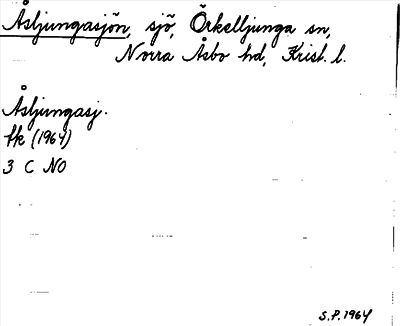 Åsljungasjön, sjö, Örkelljunga sn,
Norra Åsbo hd, Krist. l.
Åsljungasj.
fk (1964)
3 C NO
S.P. 1964